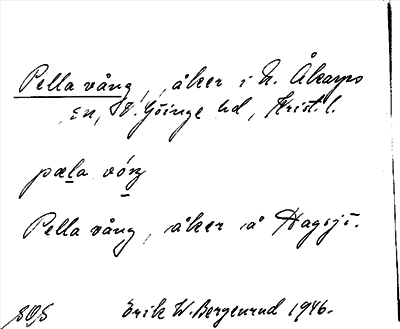 Pella vång, åker i N. Åkarps
sn, V. Göinge hd, Krist. l.
pæla vóŋ
Pella vång, åker å Hagsjö.
Erik W. Bergenrud 1946.